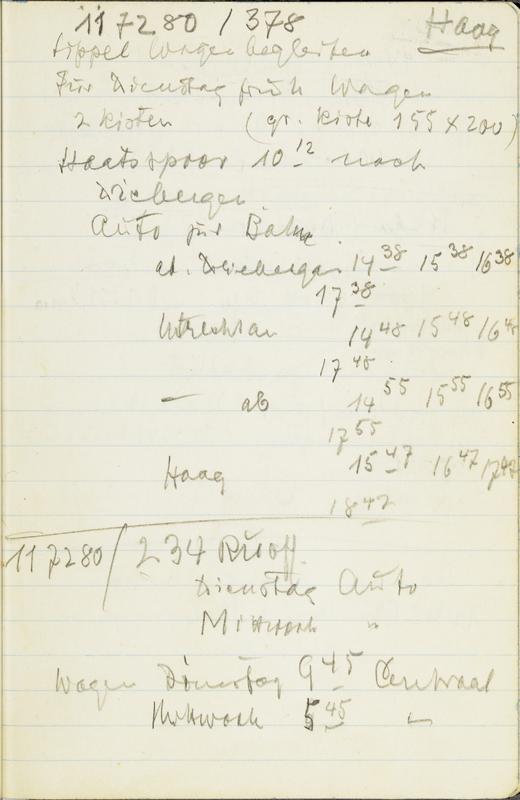 117280 / 378 Haag
Lippel Wagen begleiten
Für Dienstag früh Wagen
2 Kisten (gr. Kiste 155 x 200)
Staatsspoor 10 12 nach
Driebergen
Auto zur Bahn
ab. Driebergen 14 38 15 38 16 38
17 38
Utrecht an 14 48 15 48 16 48
17 48
— ab 14 55 15 55 16 55
17 55
Haag 15 47 16 47 17 47
18 47
117280 / 234 Ruoff
Dienstag Auto
Mittwoch "
Wagen Dienstag 9 45 Centraal
Mittwoch 5 45 "